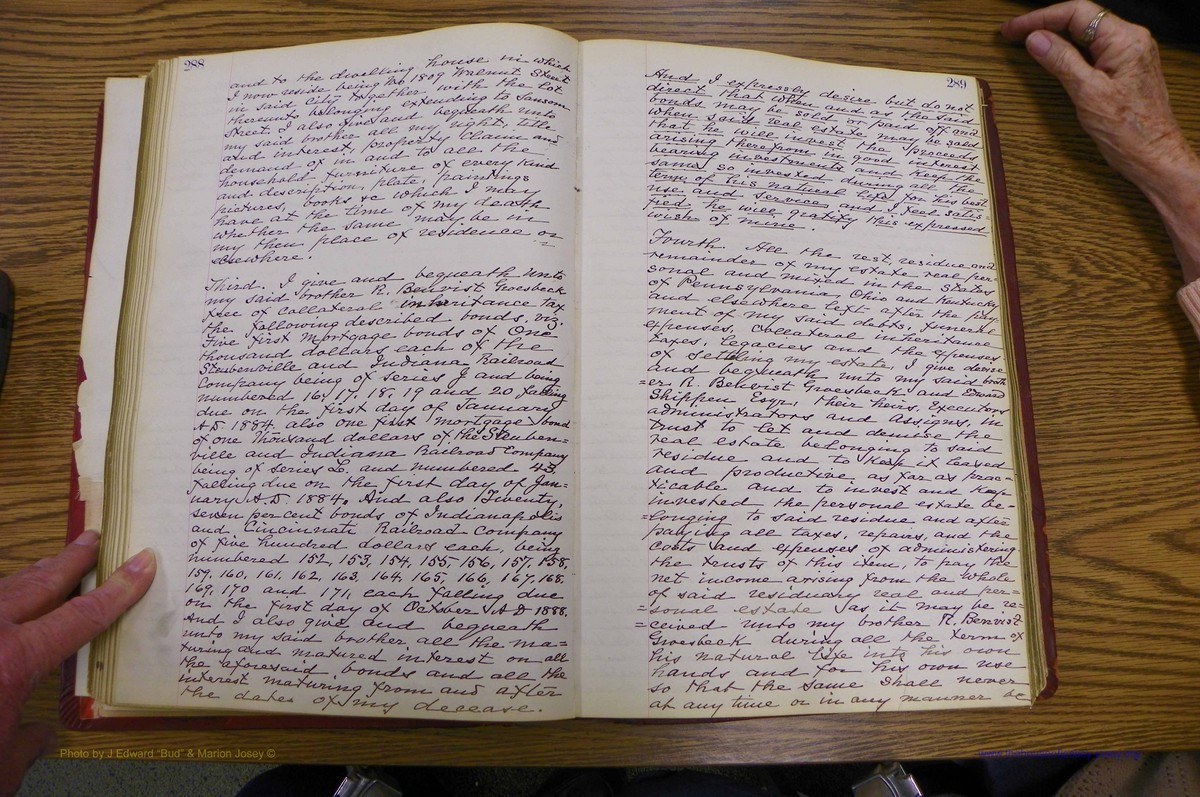 288
and to the dwelling house in which
I now reside being No 1809 Walnut Street
in said City together with the lot
thereunto belonging extending to Sansom
Street. I also give and bequeath unto
my said brother all my right, title
and interest, property claim and
demand of in and to all the
household furniture of every kind
and description, plate, paintings
pictures, books &c which I may
have at the time of my death
whether the same may be in
my then place of residence or
elsewhere.
Third. I give and bequeath unto
my said brother R. Benvist Groesbeck
free of collateral inheritance tax
the following described bonds, viz.
Five first Mortgage bonds of One
thousand dollars each of the
Steubenville and Indiana Railroad
Company being of series J and being
numbered 16, 17, 18, 19 and 20 falling
due on the first day of January
A.D. 1884 also one first mortgage bond
of one thousand dollars of the Steuben=
ville and Indiana Railroad Company
being of series L. and numbered 43,
falling due on the first day of Jan=
uary A.D 1884. And also Twenty,
seven per cent bonds of Indianapolis
and Cincinnati Railroad Company
of five hundred dollars each, being
numbered 152, 153, 154, 155, 156, 157, 158,
159, 160, 161, 162, 163, 164, 165, 166, 167, 168,
169, 170 and 171, each falling due
on the first day of October A.D 1888.
And I also give and bequeath
unto my said brother all the ma=
turing and matured interest on all
the aforesaid bonds and all the
interest maturing from and after
the dates of my decease.
289
And I expressly desire but do not
direct that when and as the said
bonds may be sold or said off and
when said real estate may be sold
that he will invest the proceeds
arising therefrom in good interest
bearing investments and keep the
same so invested during all the
term of his natural life for his best
use and service and I feel satis=
fied he will gratify this expressed
wish of mine.
Fourth. All the rest, residue and
remainder of my estate real per=
sonal and mixed in the States
of Pennsylvania, Ohio and Kentucky
and elsewhere left after the pay
ment of my said debts, funeral
expenses, collateral inheritance
taxes, legacies and the expenses
of settling my estate, I give devise
and bequeath unto my said broth
=er R. Benvist Groesbeck and Edward
Shippen Esqr, their heirs, Executors
administrators and assigns, in
trust to let and demise the
real estate belonging to said
residue and to keep it leased
and productive as far as prac=
ticable and to invest and keep
invested the personal estate be=
=longing to said residue and after
paying all taxes, repairs, and the
costs and expenses of administering
the trusts of this item, to pay the
net income arising from the whole
of said residuary real and per=
=sonal estate as it may be re=
=ceived unto my brother R. Benvist
Groesbeck during all the term of
his natural life into his own
hands and for his own use
so that the same shall never
at any time or in any manner be
Photo by J Edward "Bud" & Marion Josey ©